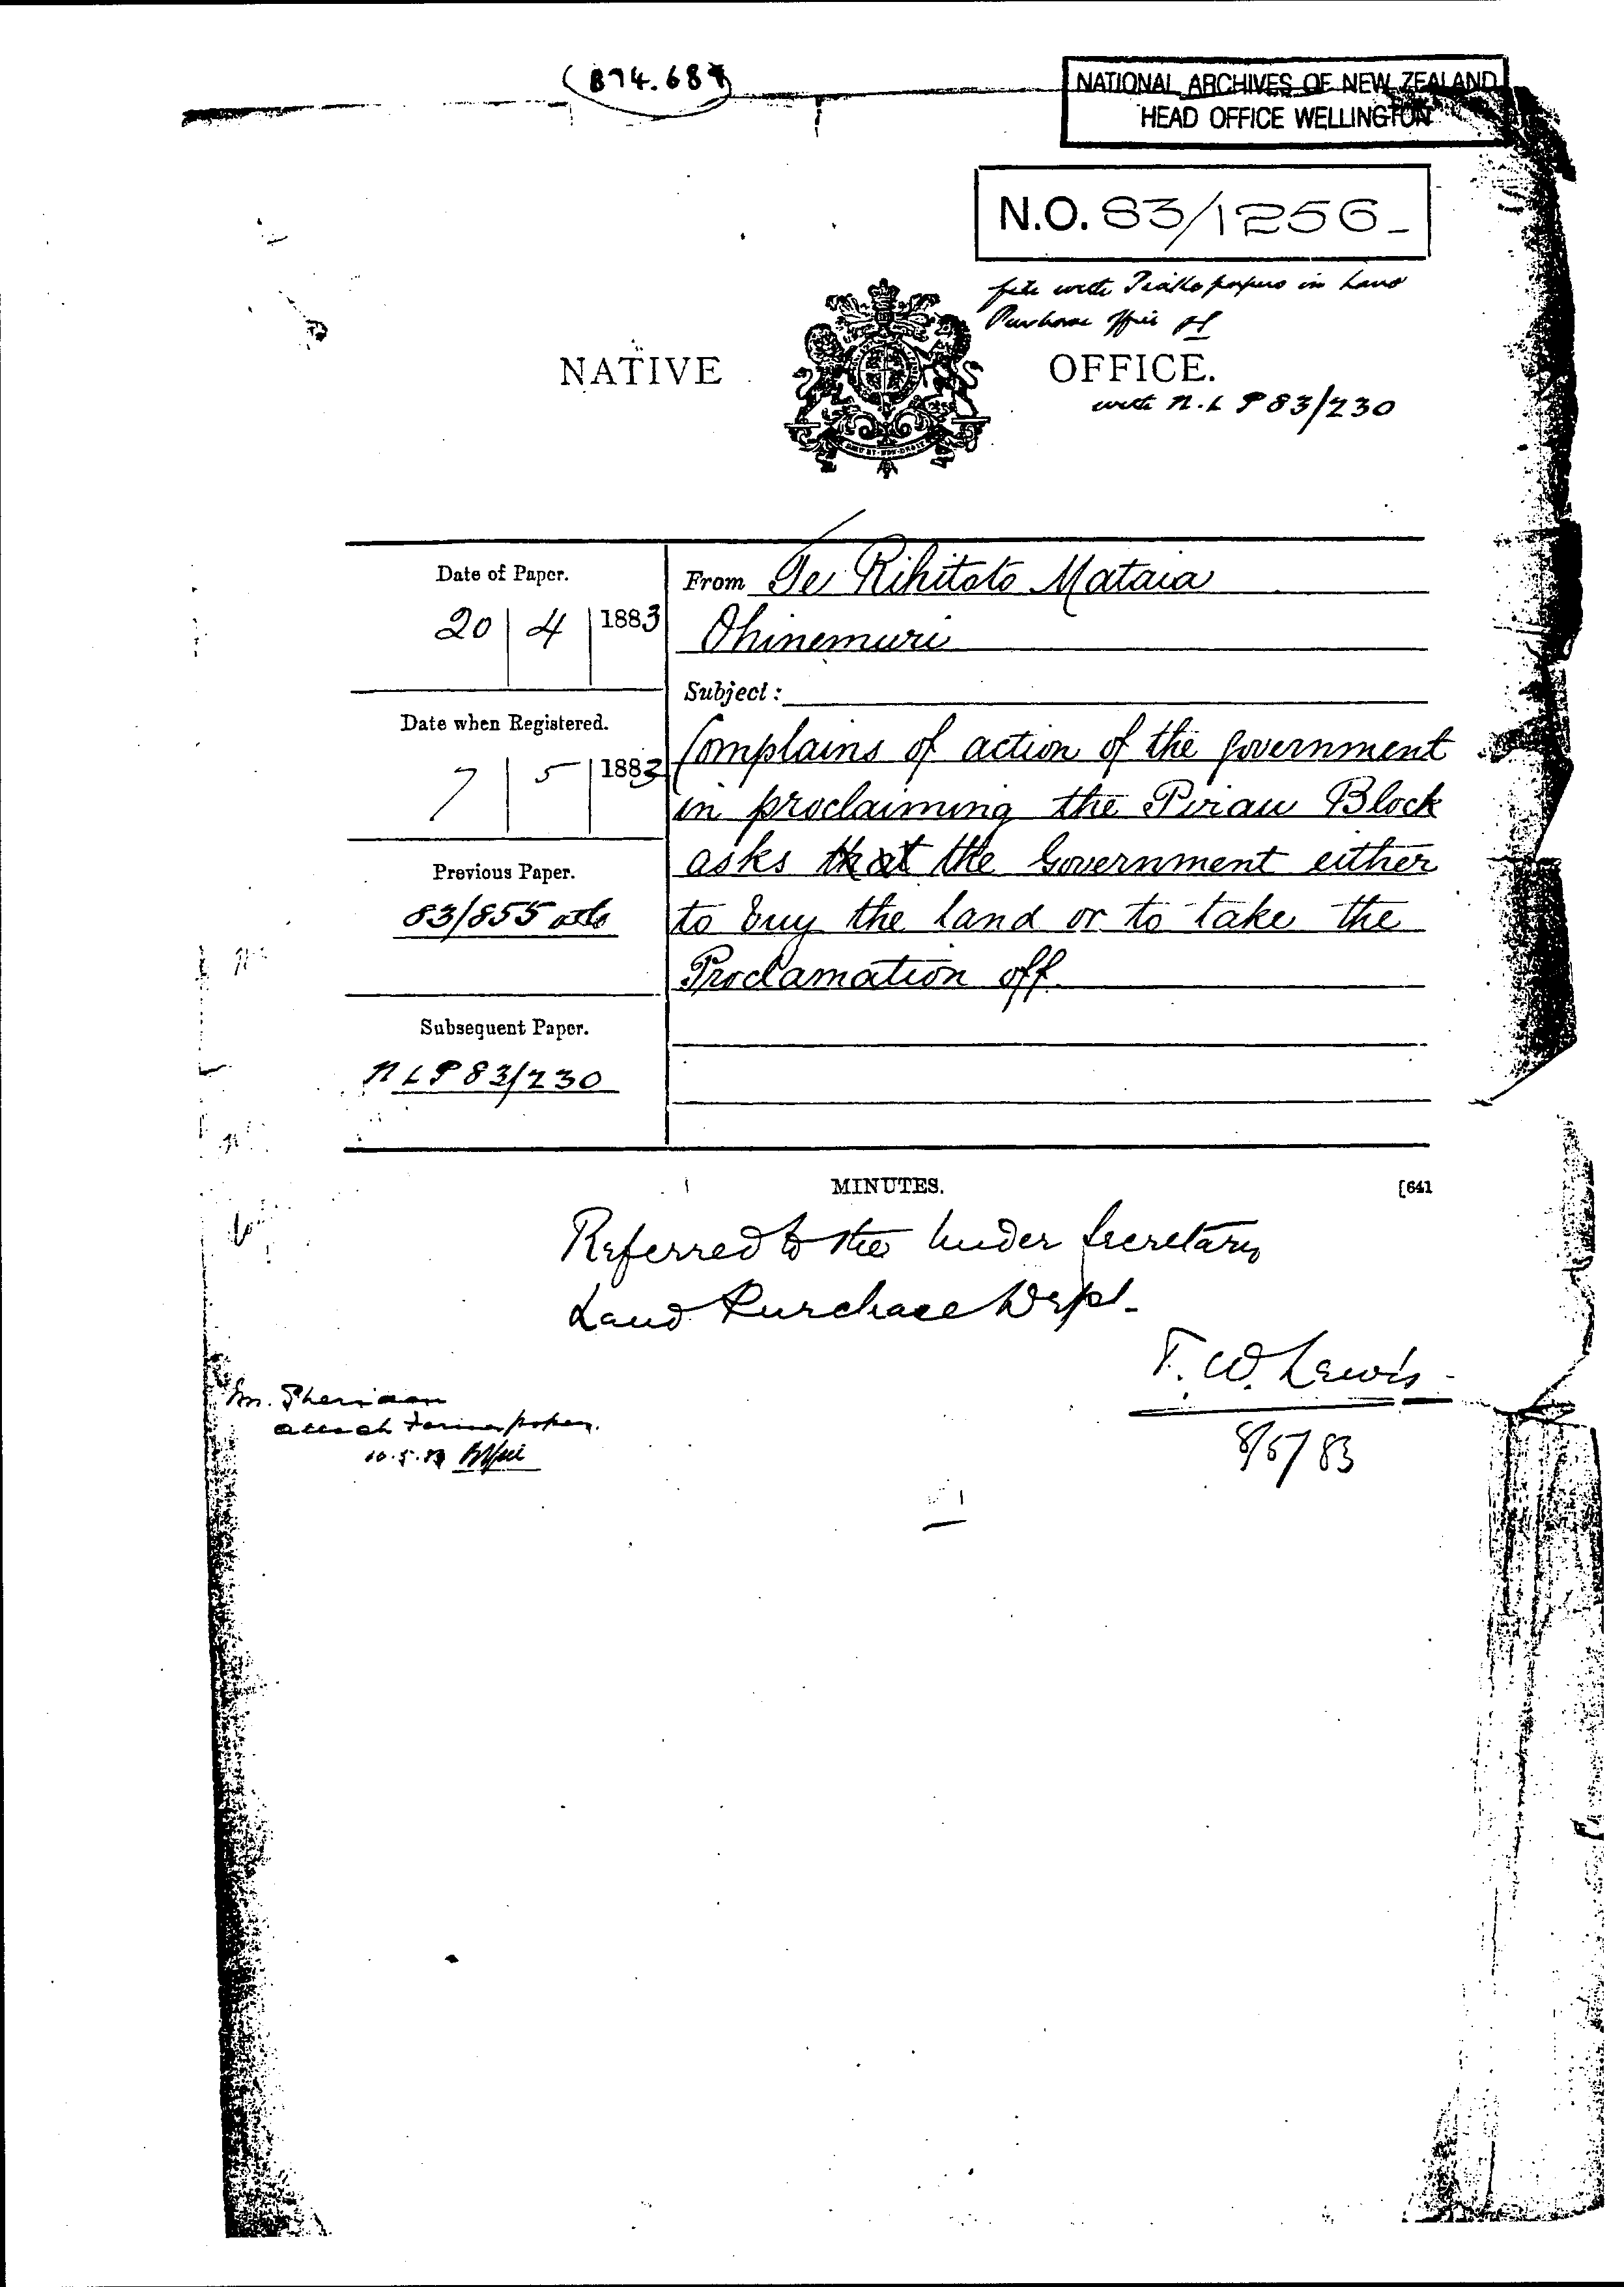 (B74.687)
NATIONAL ARCHIVES OF NEW ZEALAND
HEAD OFFICE WELLINGTON
N.O. 83/1256
file with Piako papers in Land
Purchase Office
NATIVE OFFICE.
with N.L P 83/230
Date of Paper.
20 4 1883
From Te Rihitoto Mataia
Ohinemuri
Subject:
Date when Registered.
7 5 1883
Complains of action of the government
in proclaiming the Pirau Block
asks that the Government either
to buy the land or to take the
Proclamation off.
Previous Paper.
83/855
Subsequent Paper.
N L P 83/230
MINUTES.
[641
Referred to the Under Secretary
Land Purchase Dept.
T. W. Lewis
8/5/83
Mr. Sheridan
attach former papers.
10.5.83